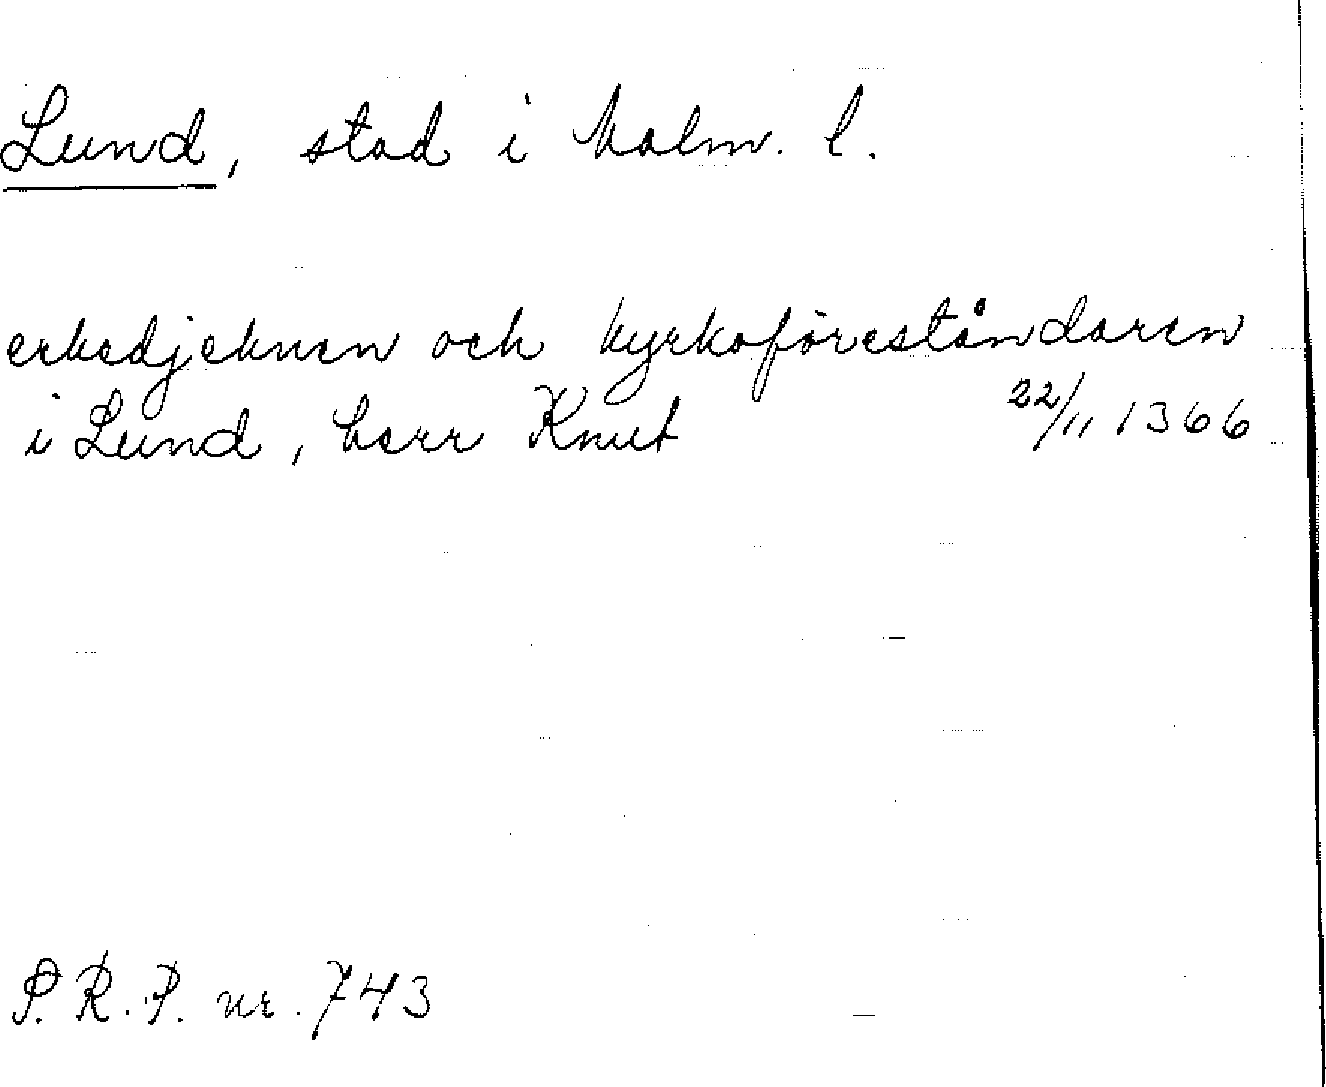 Lund, stad i Malm. l.
erkedjeknen och kyrkoföreståndaren
i Lund, herr Knut 22/11 1366
P.R.P. nr. 743